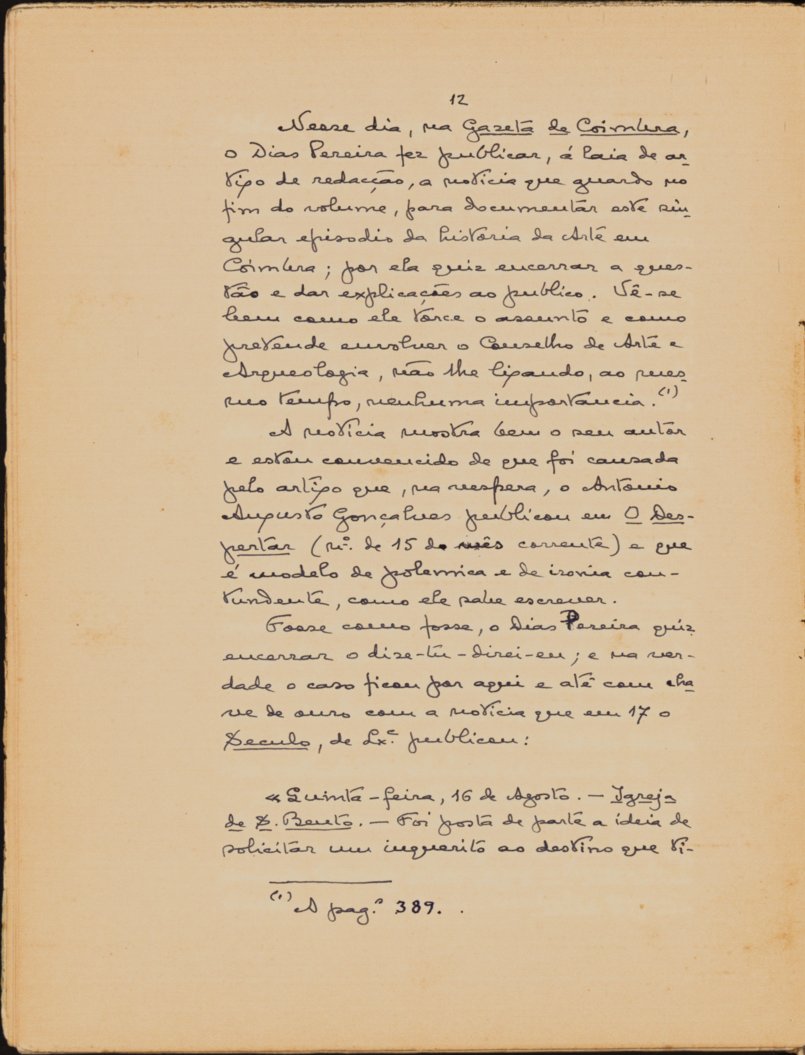 12
Nesse dia, na Gazeta de Coimbra,
o Dias Pereira fez publicar, á laia de ar-
tigo de redacção, a noticia que guardo no
fim do volume, para documentar este sin-
gular episodio da historia da Arte em
Coimbra; por ela quiz encerrar a ques-
tão e dar explicações ao publico. Vê-se
bem como ele torce o assunto e como
pretende envolver o Conselho de Arte e
Arqueologia, não lhe ligando, ao mes-
mo tempo, nenhuma importancia. (1)
A noticia mostra bem o seu autor
e estou convencido de que foi causada
pelo artigo que, na vespera, o Antonio
Augusto Gonçalves publicou em O Des-
pertar (nº. de 15 do mês corrente) e que
é modelo de polemica e de ironia con-
tundente, como ele sabe escrever.
Fosse como fosse, o Dias Pereira quiz
encerrar o dize-tu-direi-eu; e na ver-
dade o caso ficou por aqui e até com cha-
ve de ouro com a noticia que em 17 o
Seculo, de Lx.ª publicou:
«Quinta-feira, 16 de Agosto. — Igreja
de S. Bento. — Foi posta de parte a ideia de
solicitar um inquerito ao destino que ti-
(1) A pag.ª 389.